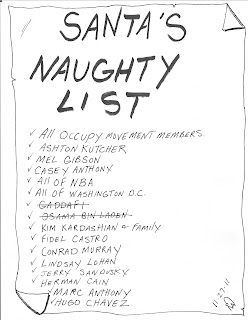 SANTA'S
NAUGHTY
LIST
✓ All OCCUPY MOVEMENT MEMBERS.
✓ ASHTON KUTCHER
✓ MEL GIBSON
✓ CASEY ANTHONY
✓ All OF NBA
✓ All OF WASHINGTON D.C.
✓ GADDAFI
✓ OSAMA BIN LADEN
✓ KIM KARDASHIAN & FAMILY
✓ FIDEL CASTRO
✓ CONRAD MURRAY
✓ LINDSAY LOHAN
✓ JERRY SANDUSKY
✓ HERMAN CAIN
✓ MARC ANTHONY
✓ HUGO CHAVEZ
11-27-11